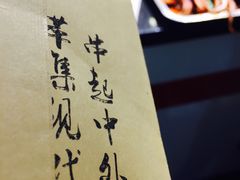 串起中外
荟集现代